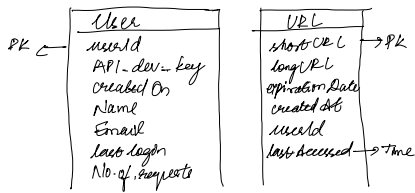 User
PK
userId
API_dev_key
created On
Name
Email
last logon
No. of. requests
URL
shortURL
PK
longURL
expiration Date
created At
userId
last Accessed
Time